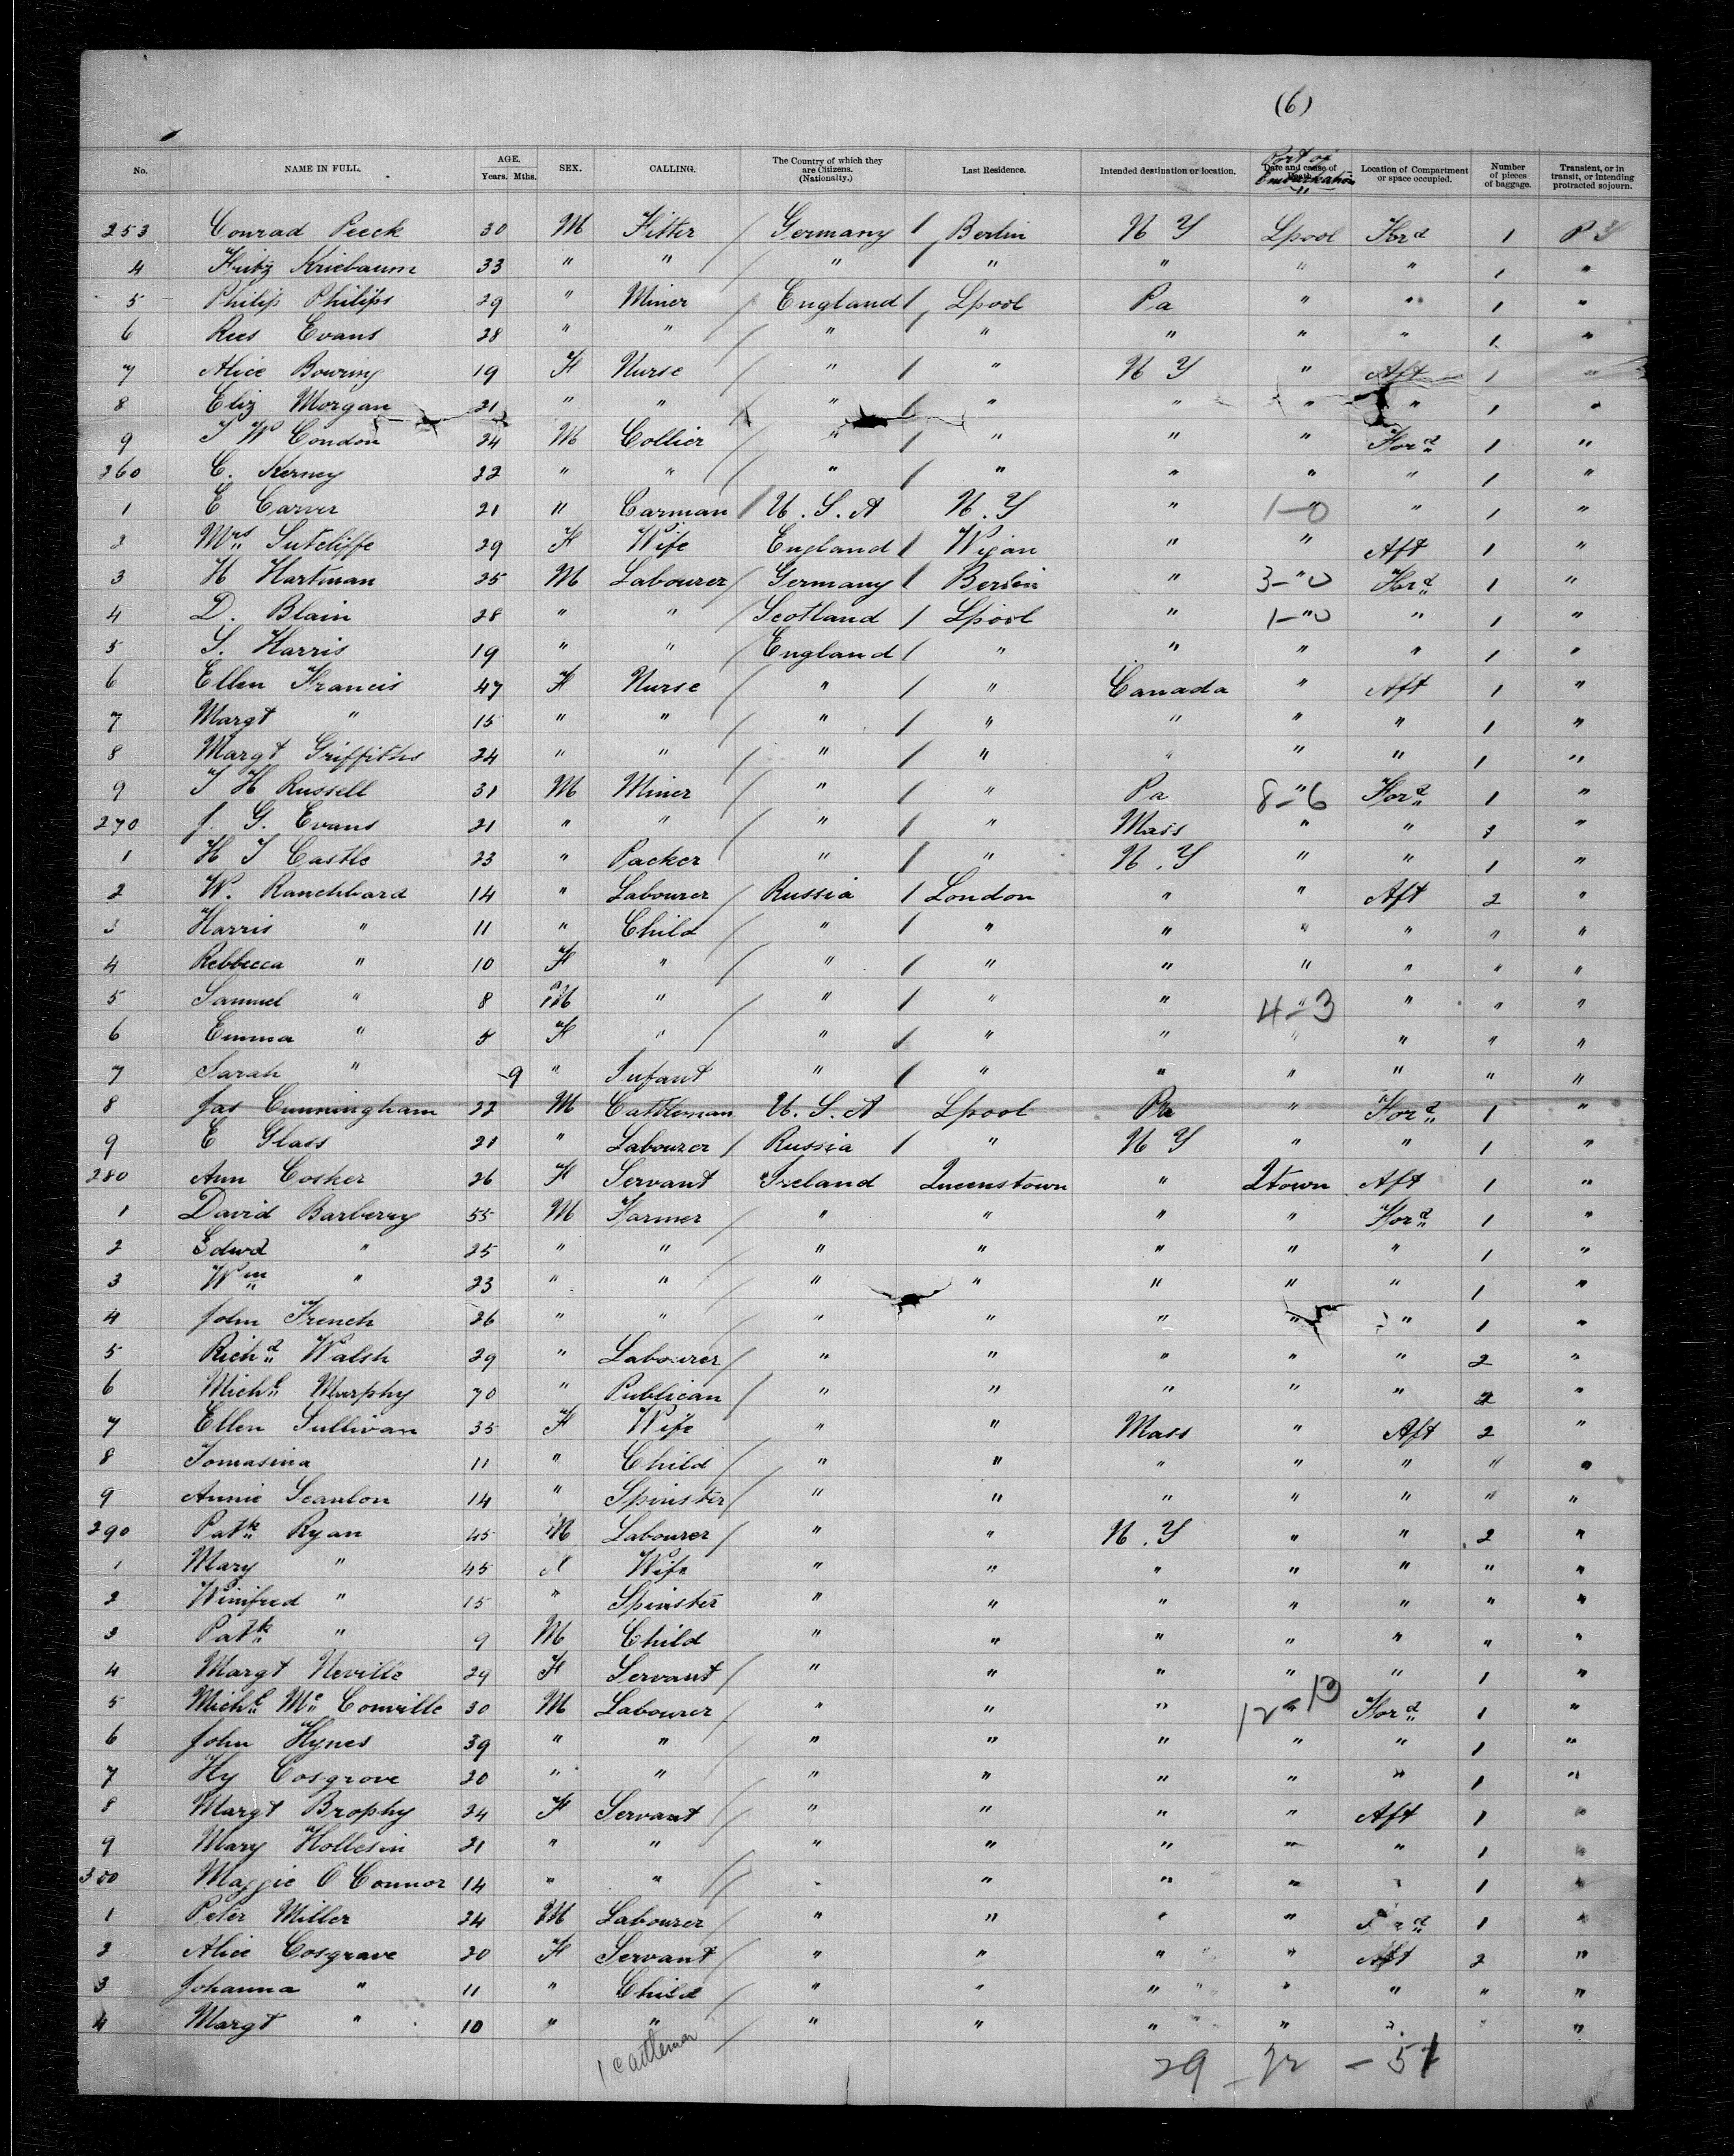 (6)
No. NAME IN FULL. AGE. Years. Mths. SEX. CALLING. The Country of which they are Citizens. (Nationalty.) Last Residence. Intended destination or location. Port of Embarkation Date and cause of Death. Location of Compartment or space occupied. Number of pieces of baggage. Transient, or in transit, or intending protracted sojourn.
253 Conrad Peeck 30 M Fitter Germany Berlin N Y Lpool Ford 1 P S
4 Fritz Kriebaum 33 " " " " " " " 1 "
5 Philip Philips 29 " Miner England Lpool Pa " " 1 "
6 Rees Evans 28 " " " " " " " 1 "
7 Alice Bowring 19 F Nurse " " N Y " Aft 1 "
8 Eliz Morgan 21 " " " " " " " 1 "
9 T W Condon 24 M Collier " " " " Ford 1 "
260 C. Kerney 22 " " " " " " " 1 "
1 E Carver 21 " Carman U.S.A N.Y " 1-0 " 1 "
2 Mrs Sutcliffe 29 F Wife England Wigan " " Aft 1 "
3 H Hartman 25 M Labourer Germany Berlin " 3-"0 Ford 1 "
4 D. Blain 28 " " Scotland Lpool " 1-"0 " 1 "
5 S. Harris 19 " " England " " " " 1 "
6 Ellen Francis 47 F Nurse " " Canada " Aft 1 "
7 Margt " 15 " " " " " " " 1 "
8 Margt Griffiths 24 " " " " " " " 1 "
9 T H Russell 31 M Miner " " Pa 8-"6 Ford 1 "
270 J. G. Evans 21 " " " " Mass " " "
1 H T Castle 23 " Packer " " N.Y " " 1 "
2 W. Ranchbard 14 " Labourer Russia London " " Aft 2 "
3 Harris " 11 " Child " " " " " " "
4 Rebbecca " 10 F " " " " " " " "
5 Samuel " 8 M " " " " 4-"3 " " "
6 Emma " 5 F " " " " " " " "
7 Sarah " 9 " Infant " " " " " " "
8 Jas Cunningham 22 M Cattleman U.S.A Lpool Pa " Ford 1 "
9 E Glass 21 " Labourer Russia " N Y " " 1 "
280 Ann Cosker 26 F Servant Ireland Queenstown " Qtown Aft 1 "
1 David Barberry 55 M Farmer " " " " Ford 1 "
2 Edwd " 25 " " " " " " " 1 "
3 Wm " 23 " " " " " " " 1 "
4 John French 26 " " " " " " " 1 "
5 Richd Walsh 29 " Labourer " " " " " 2 "
6 Michl Murphy 70 " Publican " " " " " 2 "
7 Ellen Sullivan 35 F Wife " " Mass " Aft 2 "
8 Tomasina 11 " Child " " " " " " "
9 Annie Scanlon 14 " Spinster " " " " " " "
290 Patk Ryan 45 M Labourer " " N.Y " " 2 "
1 Mary " 45 F Wife " " " " " " "
2 Winifred " 15 " Spinster " " " " " " "
3 Patk " 9 M Child " " " " " " "
4 Margt Neville 29 F Servant " " " " " 1 "
5 Michl Mc Conville 30 M Labourer " " " 12"13 Ford 1 "
6 John Hynes 39 " " " " " " " 1 "
7 Hy Cosgrove 20 " " " " " " " 1 "
8 Margt Brophy 24 F Servant " " " " Aft 1 "
9 Mary 21 " " " " " " " 1 "
300 Maggie O Connor 14 " " " " " " " 1 "
1 Peter Miller 24 M Labourer " " " " Ford 1 "
2 Alice Cosgrave 20 F Servant " " " " Aft 2 "
3 Johanna " 11 " Child " " " " " " "
4 Margt " 10 " " " " " " " " "
1 Cattleman 29 - 22 - 51